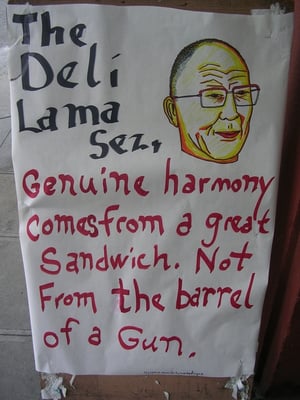 The
Deli
Lama
Sez,
Genuine harmony
Comes from a great
Sandwich. Not
From the barrel
of a Gun.